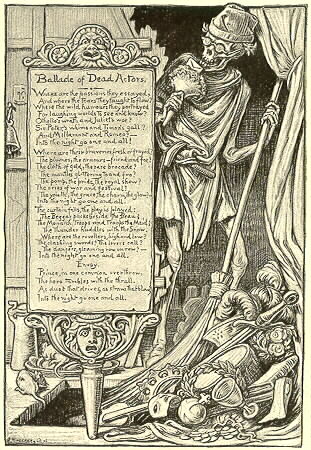 Ballade of Dead Actors.
Where are the passions they essayed,
And where the tears they taught to flow?
Where the wild humours they portrayed
For laughing worlds to see and know?
Othello's wrath and Juliet's woe?
Sir Peter's whims and Timon's gall?
And Millamant and Romeo?
Into the night go one and all!
Where are the braveries fresh or frayed?
The plumes, the armours—friend and foe?
The cloth of gold, the rare brocade,
The mantles glittering to and fro?
The pomp, the pride, the royal show?
The cries of war and festival?
The youth, the grace, the charm, the glow?
Into the night go one and all!
The curtain falls, the play is played:
The Beggar packs beside the Beau;
The Monarch Troops and Troops the Maid;
The Thunder huddles with the Snow.
Where are the revellers, high and low?
The clashing swords? The lover's call?
The dancers, gleaming row on row?
Into the night go one and all.
Envoy
Prince, in one common overthrow
The hero tumbles with the thrall.
As dust that drives, as straws that blow
Into the night go one and all.